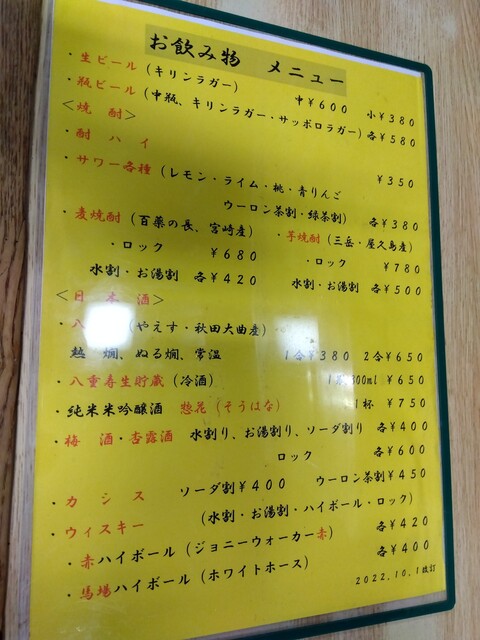 お飲み物 メニュー
・生ビール (キリンラガー) 中¥600 小¥380
・瓶ビール (中瓶、キリンラガー・サッポロラガー) 各¥580
<焼 酎>
・酎 ハ イ ¥350
・サワー各種 (レモン・ライム・桃・青りんご
ウーロン茶割・緑茶割) 各¥380
・麦焼酎 (百薬の長、宮崎産) ・芋焼酎 (三岳・屋久島産)
・ロック ¥680 ・ロック ¥780
水割・お湯割 各¥420 水割・お湯割 各¥500
<日 本 酒>
・八 (やえす・秋田大曲産)
熱 燗、ぬる燗、常温 1合¥380 2合¥650
・八重寿生貯蔵 (冷酒) 300ml ¥650
・純米米吟醸酒 惣花 (そうはな) 1杯 ¥750
・梅 酒・杏露酒 水割り、お湯割り、ソーダ割り 各¥400
ロック 各¥600
・カ シ ス ソーダ割¥400 ウーロン茶割¥450
・ウィスキー (水割・お湯割・ハイボール・ロック) 各¥420
・赤ハイボール (ジョニーウォーカー赤) 各¥400
・馬場ハイボール (ホワイトホース)
2022.10.1改訂